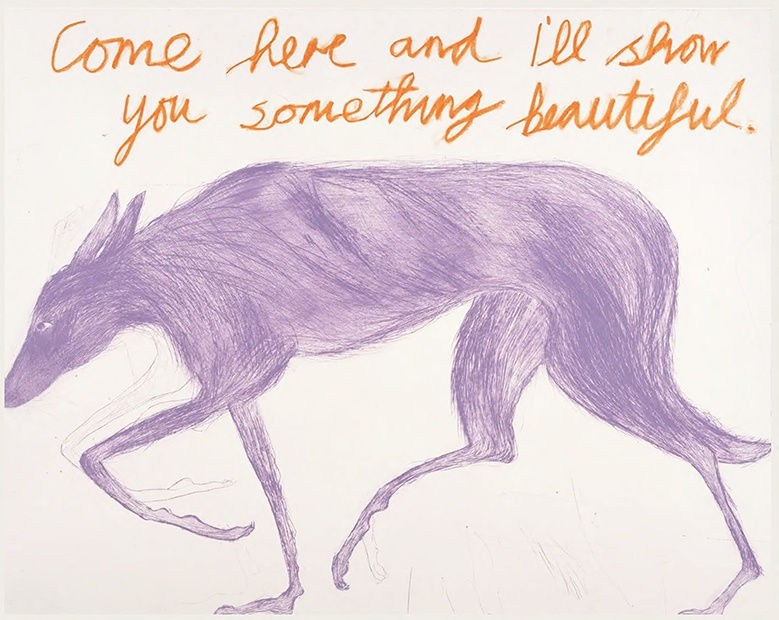 Come here and i'll show
you something beautiful.